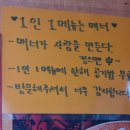 ♥1인 1메뉴는 매너♥
- 매너가 사람을 만든다.
킹스맨
- 1인 1메뉴에 한해 공기밥 무
- 방문해주셔서 너무 감사합니다